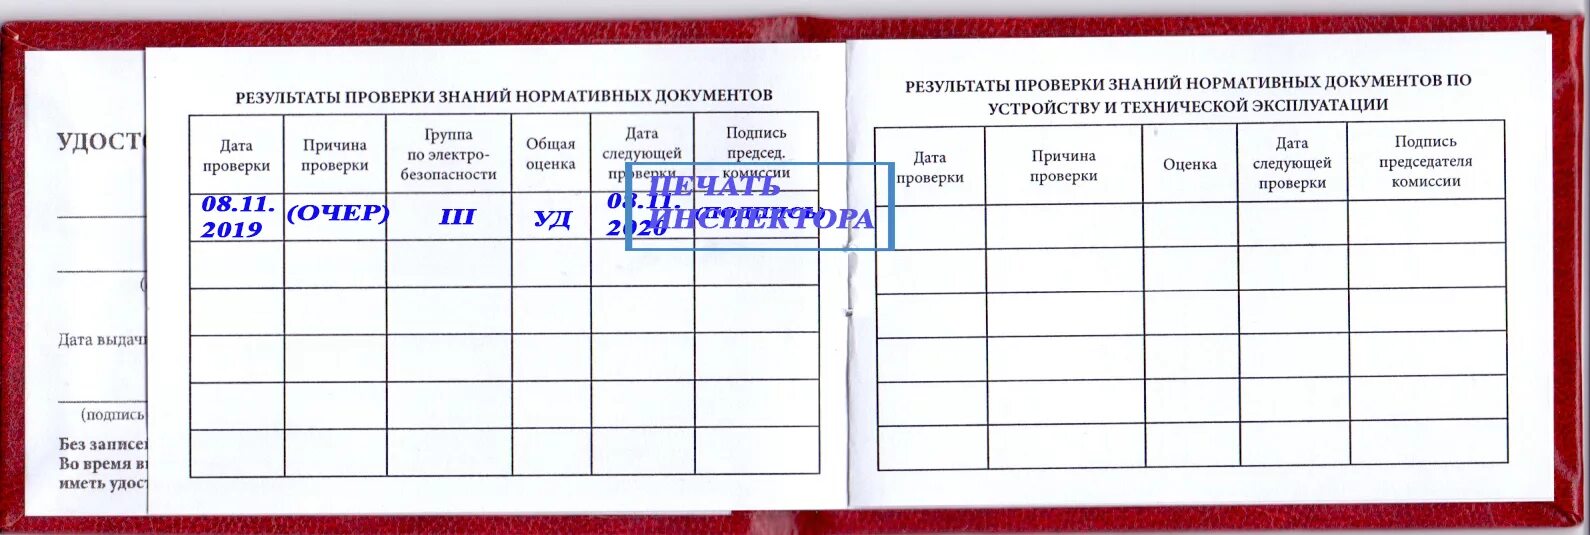 УДОСТО
Дата выдачи
(подпись
Без записей
Во время в
иметь удос
РЕЗУЛЬТАТЫ ПРОВЕРКИ ЗНАНИЙ НОРМАТИВНЫХ ДОКУМЕНТОВ
Дата
проверки
Причина
проверки
Группа
по электро-
безопасности
Общая
оценка
Дата
следующей
проверки
Подпись
председ.
комиссии
08.11.
2019
(ОЧЕР)
III
УД
08.11.
2020
(подпись)
ПЕЧАТЬ
ИНСПЕКТОРА
РЕЗУЛЬТАТЫ ПРОВЕРКИ ЗНАНИЙ НОРМАТИВНЫХ ДОКУМЕНТОВ ПО
УСТРОЙСТВУ И ТЕХНИЧЕСКОЙ ЭКСПЛУАТАЦИИ
Дата
проверки
Причина
проверки
Оценка
Дата
следующей
проверки
Подпись
председателя
комиссии